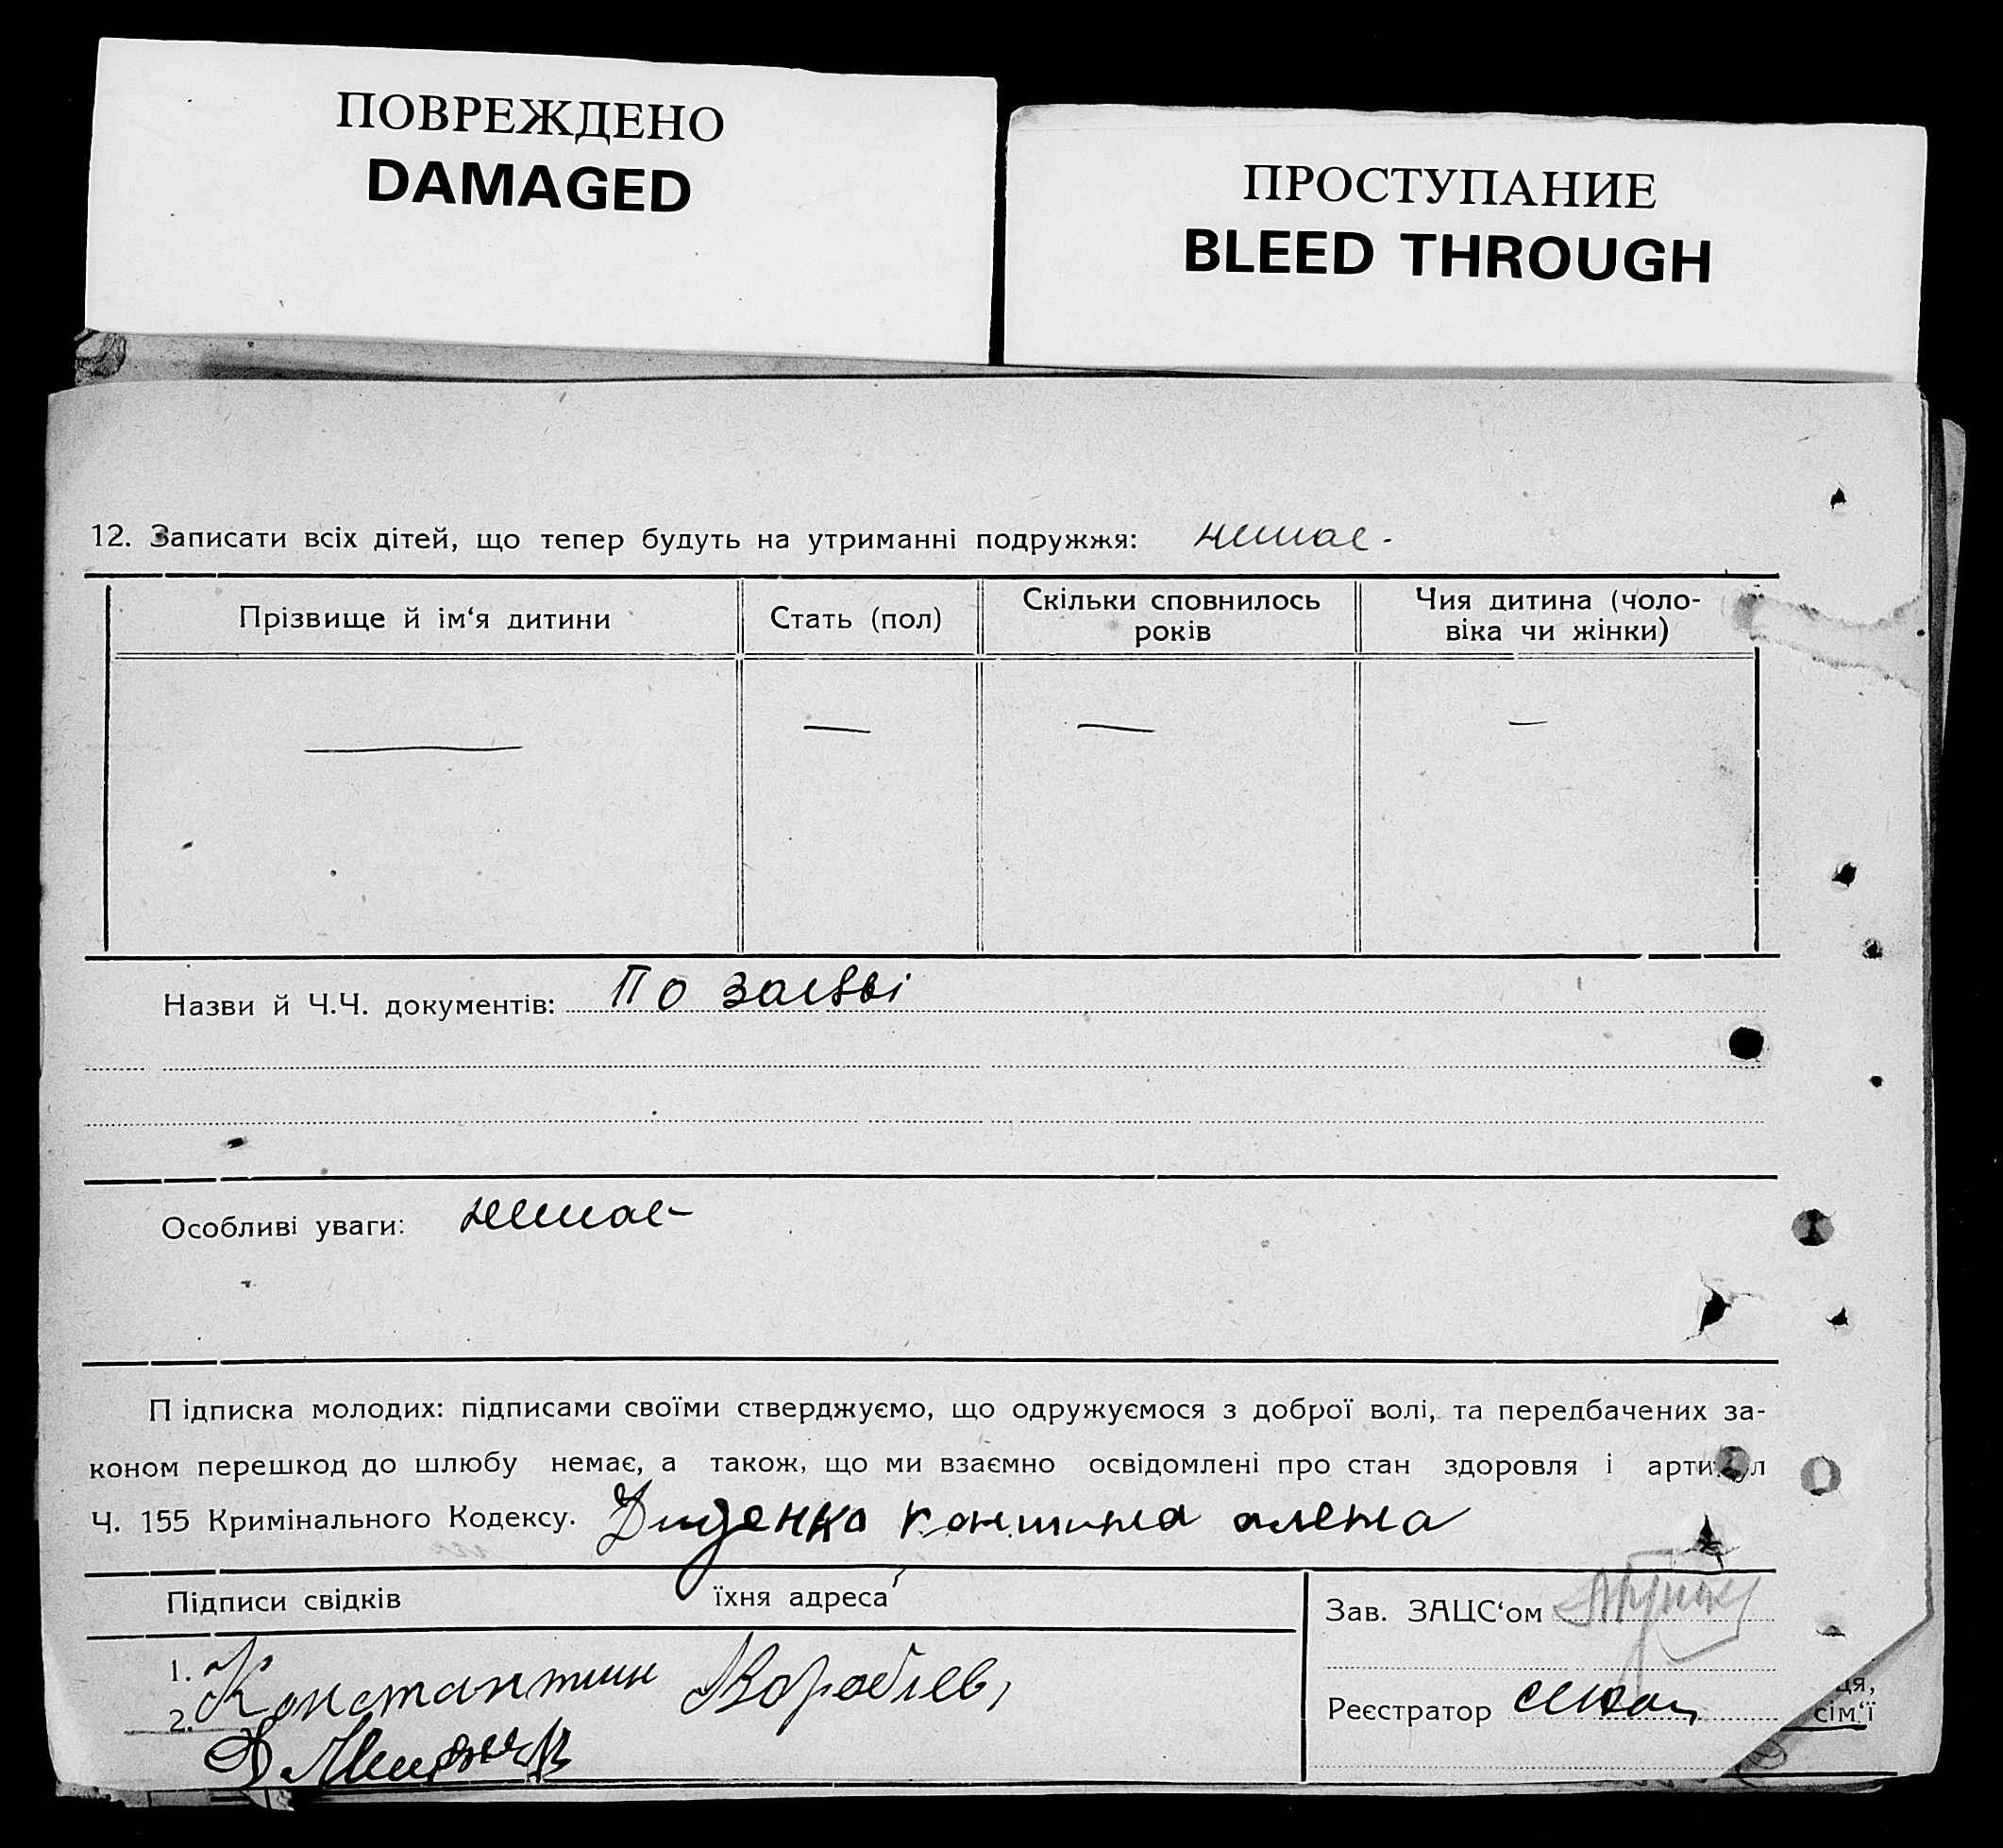 ПОВРЕЖДЕНО
DAMAGED
ПРОСТУПАНИЕ
BLEED THROUGH
12. Записати всіх дітей, що тепер будуть на утриманні подружжя: немає -
Прізвище й ім‘я дитини
Стать (пол)
Скільки сповнилось
років
Чия дитина (чоло-
віка чи жінки)
Назви й Ч.Ч. документів: По заяві
Особливі уваги: немає -
Підписка молодих: підписами своїми стверджуємо, що одружуємося з доброї волі, та передбачених за-
коном перешкод до шлюбу немає, а також, що ми взаємно освідомлені про стан здоровля і артикул
Ч. 155 Кримінального Кодексу. Диденко
Підписи свідків їхня адреса
1. Константин Воробіев,
2.
Зав. ЗАЦС‘ом
Реєстратор
ця,
сім‘ї